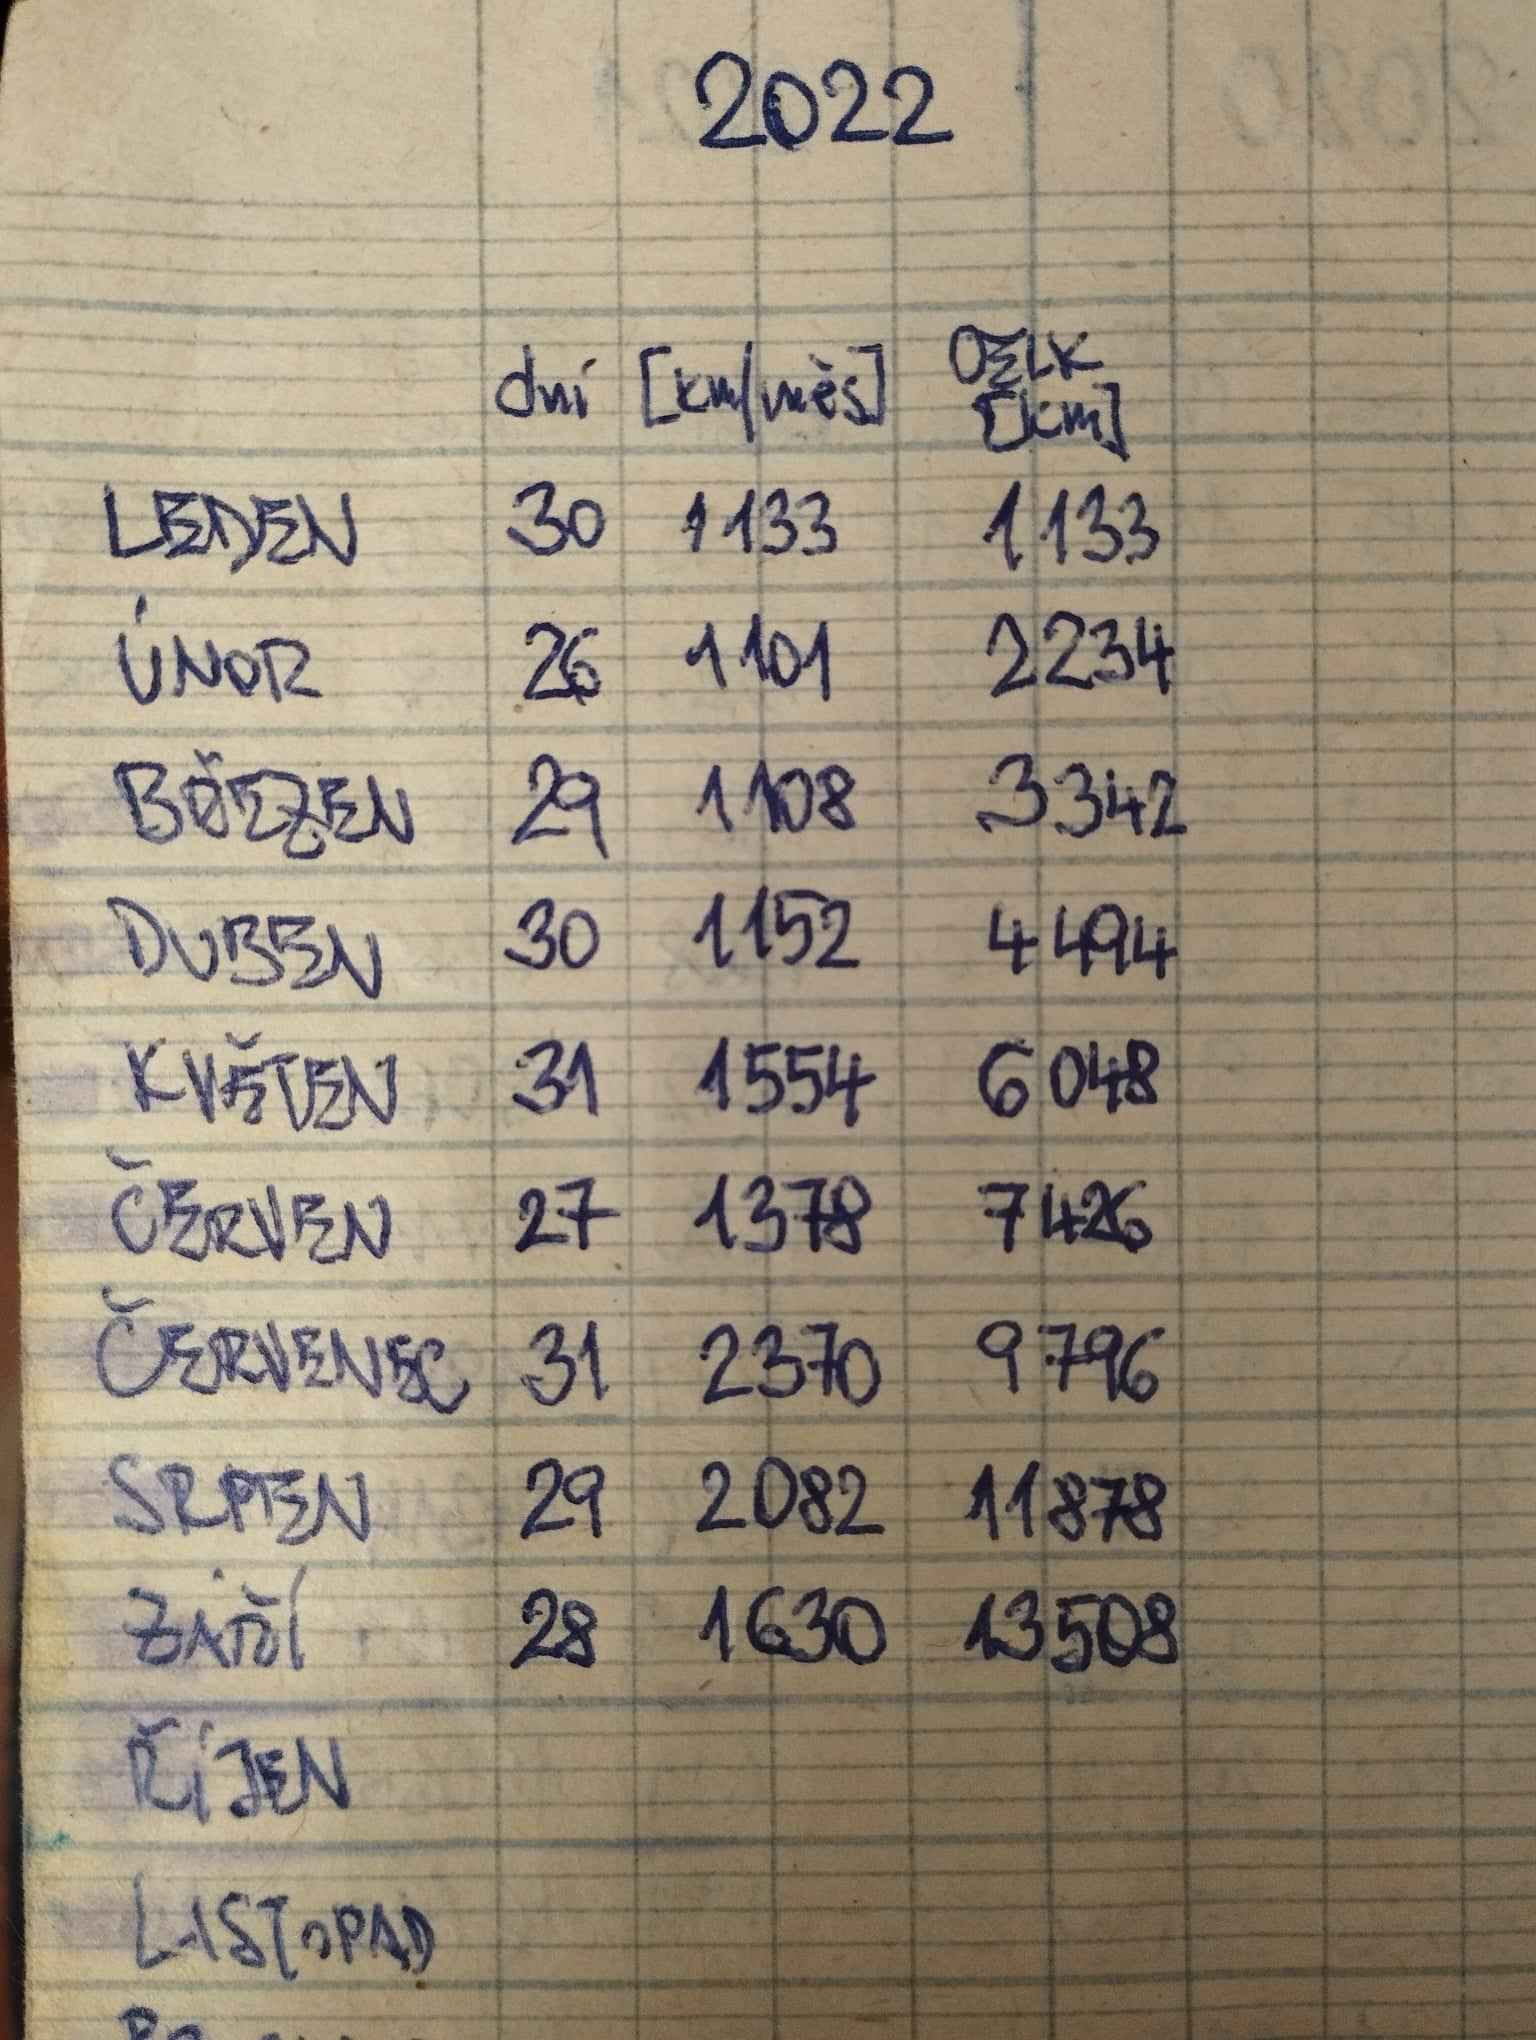 2022
dní [km/měs] CELK
[km]
LEDEN 30 1133 1133
ÚNOR 26 1101 2234
BŘEZEN 29 1108 3342
DUBEN 30 1152 4494
KVĚTEN 31 1554 6048
ČERVEN 27 1378 7426
ČERVENEC 31 2370 9796
SRPEN 29 2082 11878
ZÁŘÍ 28 1630 13508
ŘÍJEN
LISTOPAD